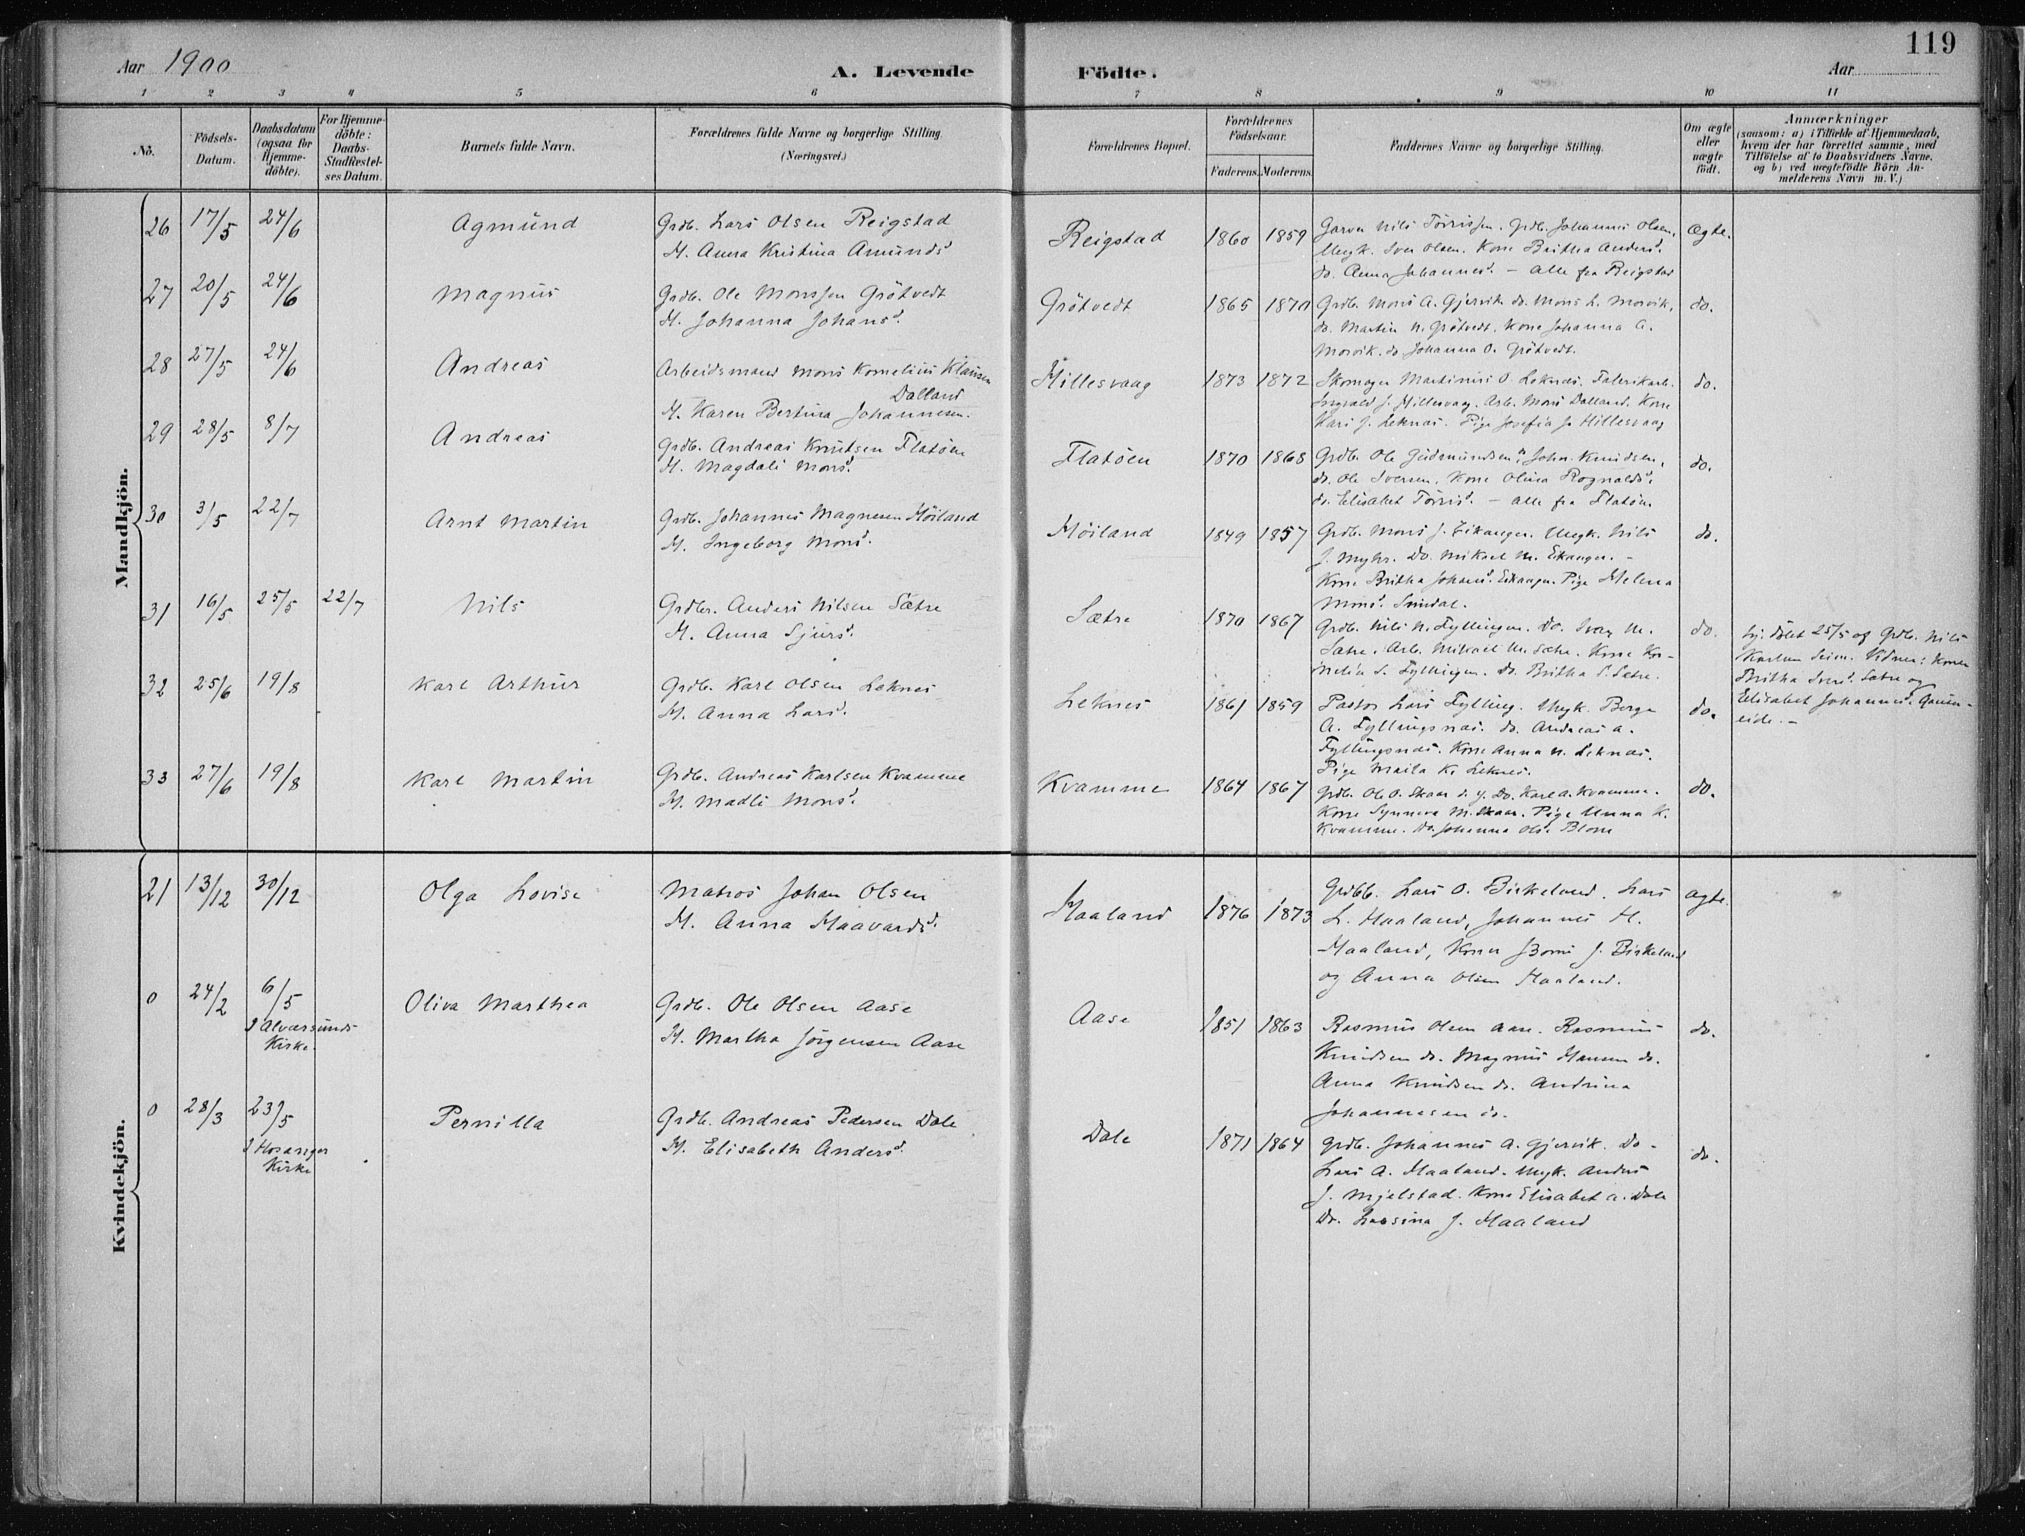 119
Aar 1900
A. Levende
Födte.
Aar
1 2 3 4 5 6 7 8 9 10 11
No.
Födsels-
Datum.
Daabsdatum
(ogsaa for
Hjemme-
döbte).
For Hjemme-
döbte:
Daabs-
Stadfæstel-
ses Datum.
Barnets fulde Navn.
Forældrenes fulde Navne og borgerlige Stilling
(Næringsvei.)
Forældrenes Bopæl.
Forældrenes
Födselsaar.
Faderens.
Moderens.
Faddernes Navne og borgerlige Stilling.
Om ægte
eller
uægte
födt.
Anmærkninger
(saasom: a) i Tilfælde af Hjemmedaab,
hvem der har forrettet samme, med
Tilföielse af to Daabsvidners Navne,
og b) ved uægtefödte Börn An-
melderens Navn m. V.)
Mandkjön.
26 17/5 24/6 Agmund
Grdb. Lars Olsen Reigstad
H. Anna Kristina Amunds d.
Reigstad 1860 1859
Garver Nils Törrissen. Grdb. Johannes Olsen,
Ungk. Iver Olsen. Kone Britha Anders d.
do. Anna Johannes d. – alle fra Reigstad
Ægte.
27 20/5 24/6 Magnus
Grdb. Ole Monssen Grötvedt
H. Johanna Johans d.
Grötvedt 1865 1870
Grdb. Mons A. Gjervik. do. Mons L. Mosvik,
do. Martin N. Grötvedt. Kone Johanna A.
Mosvik. do Johanna O. Grötvedt.
do.
28 27/5 24/6 Andreas
Arbeidsmand Mons Kornelius Klausen
Dalland
H. Karen Bertina Johannesen.
Hillesvaag 1873 1872
Skomager Martinus O. Leknes. Fabrikarb.
Ingvald J. Hillesvag. Arb. Mons Dalland. Kone
Kari J. Leknas. Pige Josefia J. Hillesvaag
do.
29 28/5 8/7 Andreas
Grdb. Andreas Knutsen Flatöen
H. Magdali Mons d.
Flatöen 1870 1868
Grdb. Ole Gudmundsen, John Knudsen,
do. Ole Iversen. Kone Olina Rognalds d.
do. Elisabet Törris d. – alle fra Flatöen
do.
30 3/5 22/7 Arnt Martin
Grdb. Johannes Magnesen Höiland
H. Ingeborg Mons d.
Höiland 1849 1857
Grdb. Mons J. Eikanger. Ungk. Nils
J. Myhr. Do. Mikael M. Eikanger. –
Kone Britha Johans d. Eikanger. Pige Helena
Mons d. Sundal.
do.
31 16/5 25/5 22/7 Nils
Grdbr. Anders Nilsen Sætre
H. Anna Sjurs d.
Sætre 1870 1867
Grdb. Nils N. Fyllingen. Do. Ivar M.
Sætre. Arb. Mikael M. Sætre. Kone Kor-
nelia S. Fyllingen. Do. Britha S. Sætre.
do.
Hj. döbt 25/5 af Grdb. Nils
Karlsen Seim. Vidner: Konen
Britha Ivers d. Sætre og
Elisabet Johannes d.
eide. –
32 25/6 19/8 Karl Arthur
Grdb. Karl Olsen Leknes
H. Anna Lars d.
Leknes 1861 1859
Pastor Lars Fylling. Ungk. Berge
A. Fyllingsnas. do. Andreas A.
Fyllingsnas. Kone Anna N. Leknas.
Pige Maila K. Leknes.
do.
33 27/6 19/8 Karl Martin
Grdb. Andreas Karlsen Kvamme
H. Madli Mons d.
Kvamme 1864 1867
Grdb. Ole O. Skaar d. y. Do. Karl A. Kvamme.
Kone Synneva M. Skaar. Pige Anna K.
Kvamme. Do. Johanna Ols d. Blom
do.
Kvindekjön.
21 13/12 30/12 Olga Lovise
Matros Johan Olsen
H. Anna Haavards d.
Haaland 1876 1873
Grdbb. Lars O. Birkeland. Lars
L. Haaland, Johannes H.
Haaland, Koner J. Birkeland
og Anna Olsen Haaland.
ægte.
0 24/2 6/5
I Alværsunds
Kirke.
Oliva Marthea
Grdb. Ole Olsen Aase
H. Martha Jörgensen Aase
Aase 1851 1863
Rasmus Olsen Aase. Rasmus
Knudsen do. Magnus Hansen do.
Anna Knudsen do. Andrina
Johannesen do.
do.
0 28/3 23/5
I Hosanger
Kirke
Pernilla
Grdb. Andreas Pedersen Dale
H. Elisabeth Anders d.
Dale 1871 1864
Grdb. Johannes A. Gjervik. Do –
Lars A. Haaland. Ungk. Anders
J. Mjelstad. Kone Elisabet A. Dale
Do. Larsina J. Haaland
do.